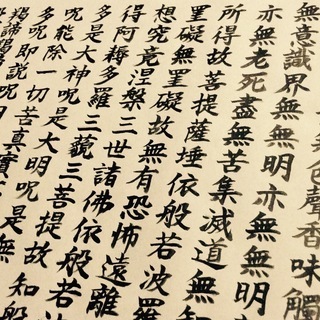 色聲香味觸
無意識界無無明亦無無明
亦無老死盡無苦集滅道無
所得故菩提薩埵依般若波羅
罣礙無罣礙故無有恐怖遠離
想究竟涅槃三世諸佛依般若
得阿耨多羅三藐三菩提故知般
呪是大神呪是大明呪是無
呪能除一切苦真實
多呪即說呪
揭諦揭